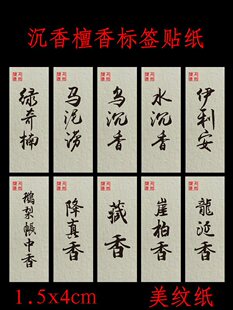 沉香檀香标签贴纸
绿奇楠
马泥涝
乌沉香
水沉香
伊利安
鹅梨帐中香
降真香
藏香
崖柏香
龙涎香
1.5x4cm
美纹纸